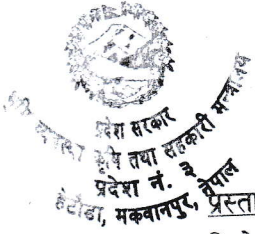 प्रदेश सरकार
कृषि तथा सहकारी मन्त्रालय
प्रदेश नं. ३
हेटौंडा, मकवानपुर, नेपाल
प्रस्ता